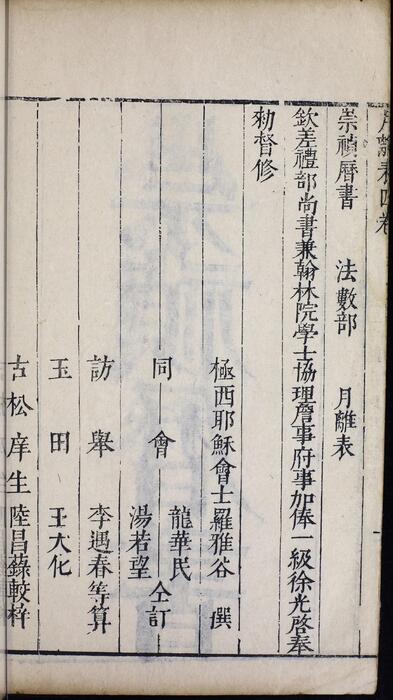 月離表四卷
崇禎曆書 法數部 月離表
欽差禮部尚書兼翰林院學士協理詹事府事加俸一級徐光啓奉
勑督修
極西耶穌會士羅雅谷 撰
同會 龍華民
湯若望 仝訂
訪舉 李遇春等算
玉田 王大化
古松庠生陸昌蕣較梓